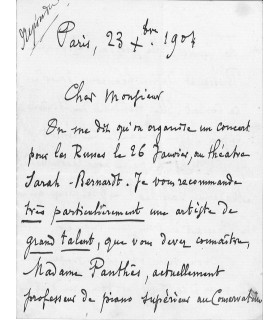 Répondu
Paris, 23 Xbre. 1904
Cher Monsieur
On me dit qu'on organise un concert
pour les Russes le 26 Janvier, au théâtre
Sarah-Bernardt. Je vous recommande
très particulièrement une artiste de
grand talent, que vous devez connaître,
Madame Panthès, actuellement
professeur de piano supérieur au Conservatoire